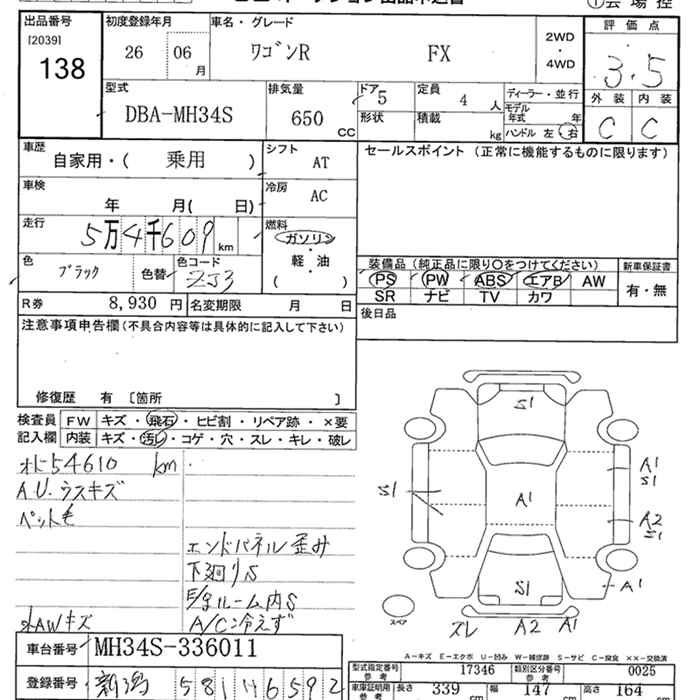 ①会場控
出品番号 初度登録年月 車名・グレード 評価点
[2039] 138 26 06月 ワゴンR FX 2WD・4WD 3.5
型式 排気量 ドア 5 定員 4人 ディーラー・並行 外装 内装
DBA-MH34S 650 CC 形状 積載 kg モデル年式 年 C C
ハンドル 左 右
車歴 自家用・( 乗用 ) シフト AT セールスポイント (正常に機能するものに限ります)
車検 年 月( 日) 冷房 AC
走行 5万4千609km 燃料 ガソリン
色 ブラック 色替 色コード ZJ3 軽・油 ( )
装備品 (純正品に限り〇をつけてください) 新車保証書
PS PW ABS エアB AW 有・無
SR ナビ TV カワ
R券 8,930円 名変期限 月 日
後日品
注意事項申告欄(不具合内容等は具体的に記入して下さい)
修復歴 有 [箇所 ]
検査員 FW キズ・飛石・ヒビ割・リペア跡・×要
記入欄 内装 キズ・汚れ・コゲ・穴・スレ・キレ・破レ
54610 km
A.U.ウスキズ
ペット毛
エンドパネル歪み
下廻りS
ルーム内S
AWキズ A/C冷えず
S1
S1 A1 A1 S1
A2 S1
S1 A1
スペア スレ A2 A1
A-キズ E-エクボ U-凹み W-補修跡 S-サビ C-腐食 ××-交換済
車台番号 MH34S-336011
型式指定番号 参考 17346 類別区分番号 参考 0025
登録番号 新潟 581 6592
車庫証明用 参考 長さ 339 幅 147 高さ 164